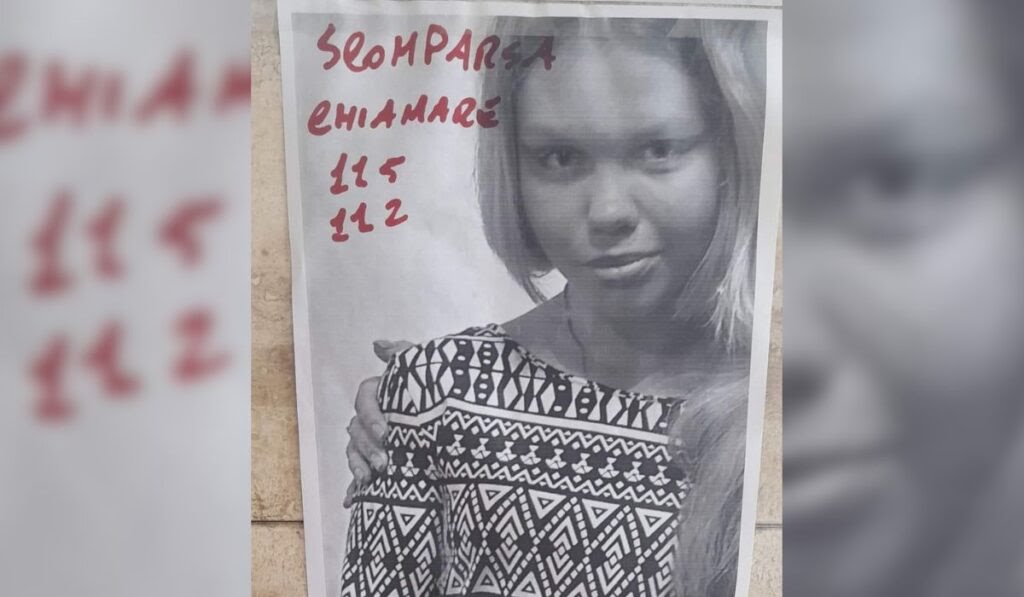 SCOMPARSA
CHIAMARE
115
112